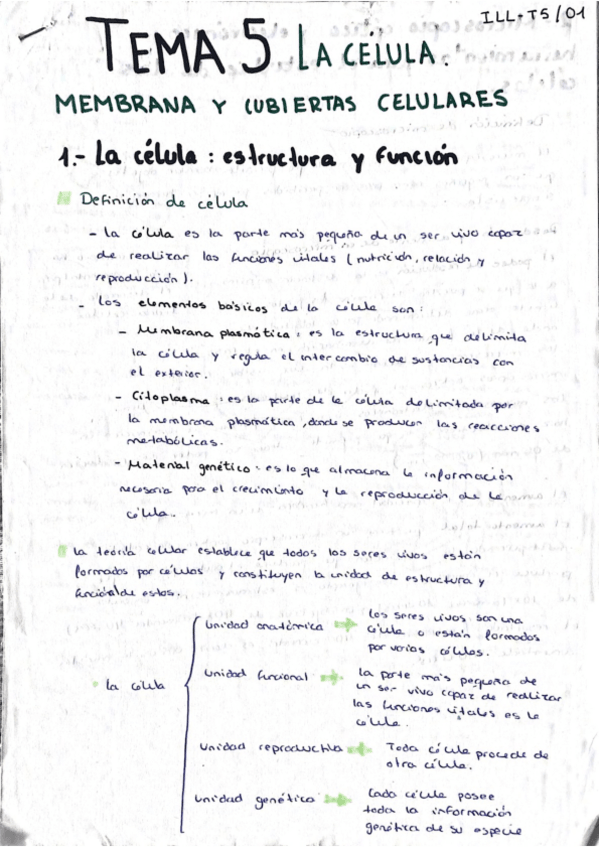 ILL.T5/01
TEMA 5 LA CÉLULA.
MEMBRANA Y CUBIERTAS CELULARES
1.- La célula: estructura y función
Definición de célula
- La célula es la parte más pequeña de un ser vivo capaz
de realizar las funciones vitales (nutrición, relación y
reproducción).
- Los elementos básicos de la célula son:
- Membrana plasmática: es la estructura que delimita
la célula y regula el intercambio de sustancias con
el exterior.
- Citoplasma: es la parte de la célula delimitada por
la membrana plasmática, donde se producen las reacciones
metabólicas.
- Material genético: es lo que almacena la información
necesaria para el crecimiento y la reproducción de la
célula.
La teoría celular establece que todos los seres vivos están
formados por células y constituyen la unidad de estructura y
función de estos.
Unidad anatómica → Los seres vivos son una
célula o están formados
por varias células.
· La célula
Unidad funcional → La parte más pequeña de
un ser vivo capaz de realizar
las funciones vitales es la
célula.
Unidad reproductiva → Toda célula procede de
otra célula.
Unidad genética → Cada célula posee
toda la información
genética de su especie